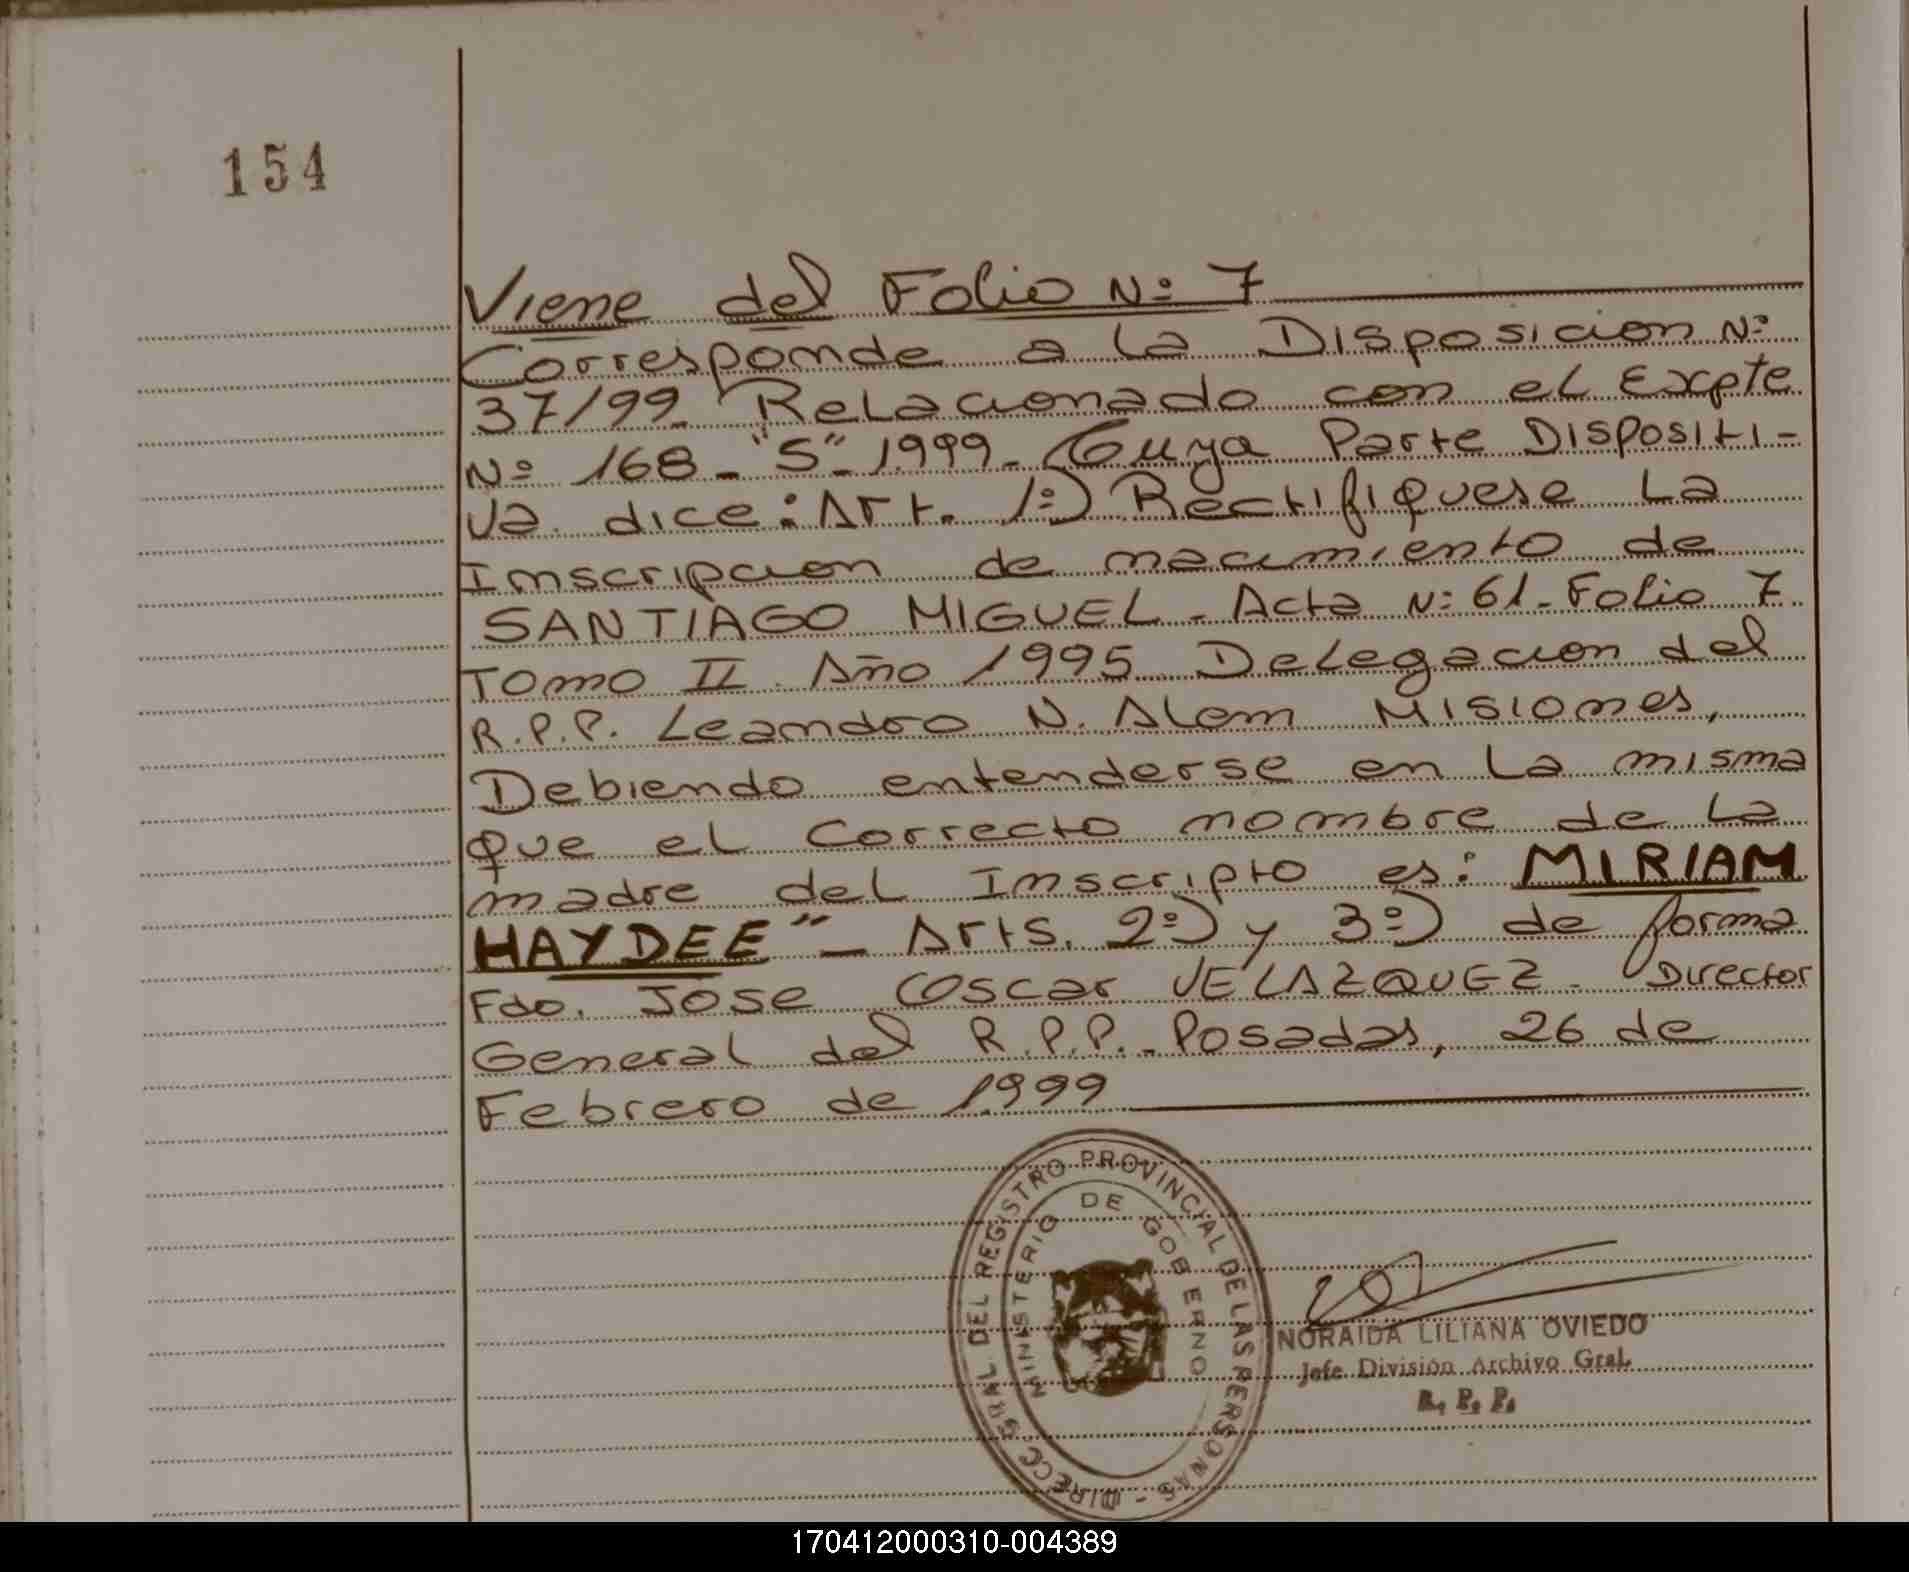 154
Viene del Folio Nº 7
Corresponde a la Disposicion Nº
37/99 Relacionado con el Expte
Nº 168 - "S" - 1999 - Cuya Parte Dispositi-
va dice: Art. 1º) Rectifiquese La
Inscripcion de nacimiento de
SANTIAGO MIGUEL - Acta Nº 61 - Folio 7
Tomo II Año 1995 Delegacion del
R.P.P. Leandro N. Alem Misiones,
Debiendo entenderse en La misma
que el Correcto nombre de La
madre del Inscripto es: MIRIAM
HAYDEE" - Arts. 2º) y 3º) de forma
Fdo. Jose Oscar VELAZQUEZ - Director
General del R.P.P. - Posadas, 26 de
Febrero de 1999
DIRECC. GRAL. DEL REGISTRO PROVINCIAL DE LAS PERSONAS -
MINISTERIO DE GOBIERNO
NORAIDA LILIANA OVIEDO
Jefe División Archivo Gral.
R. P. P.
170412000310-004389